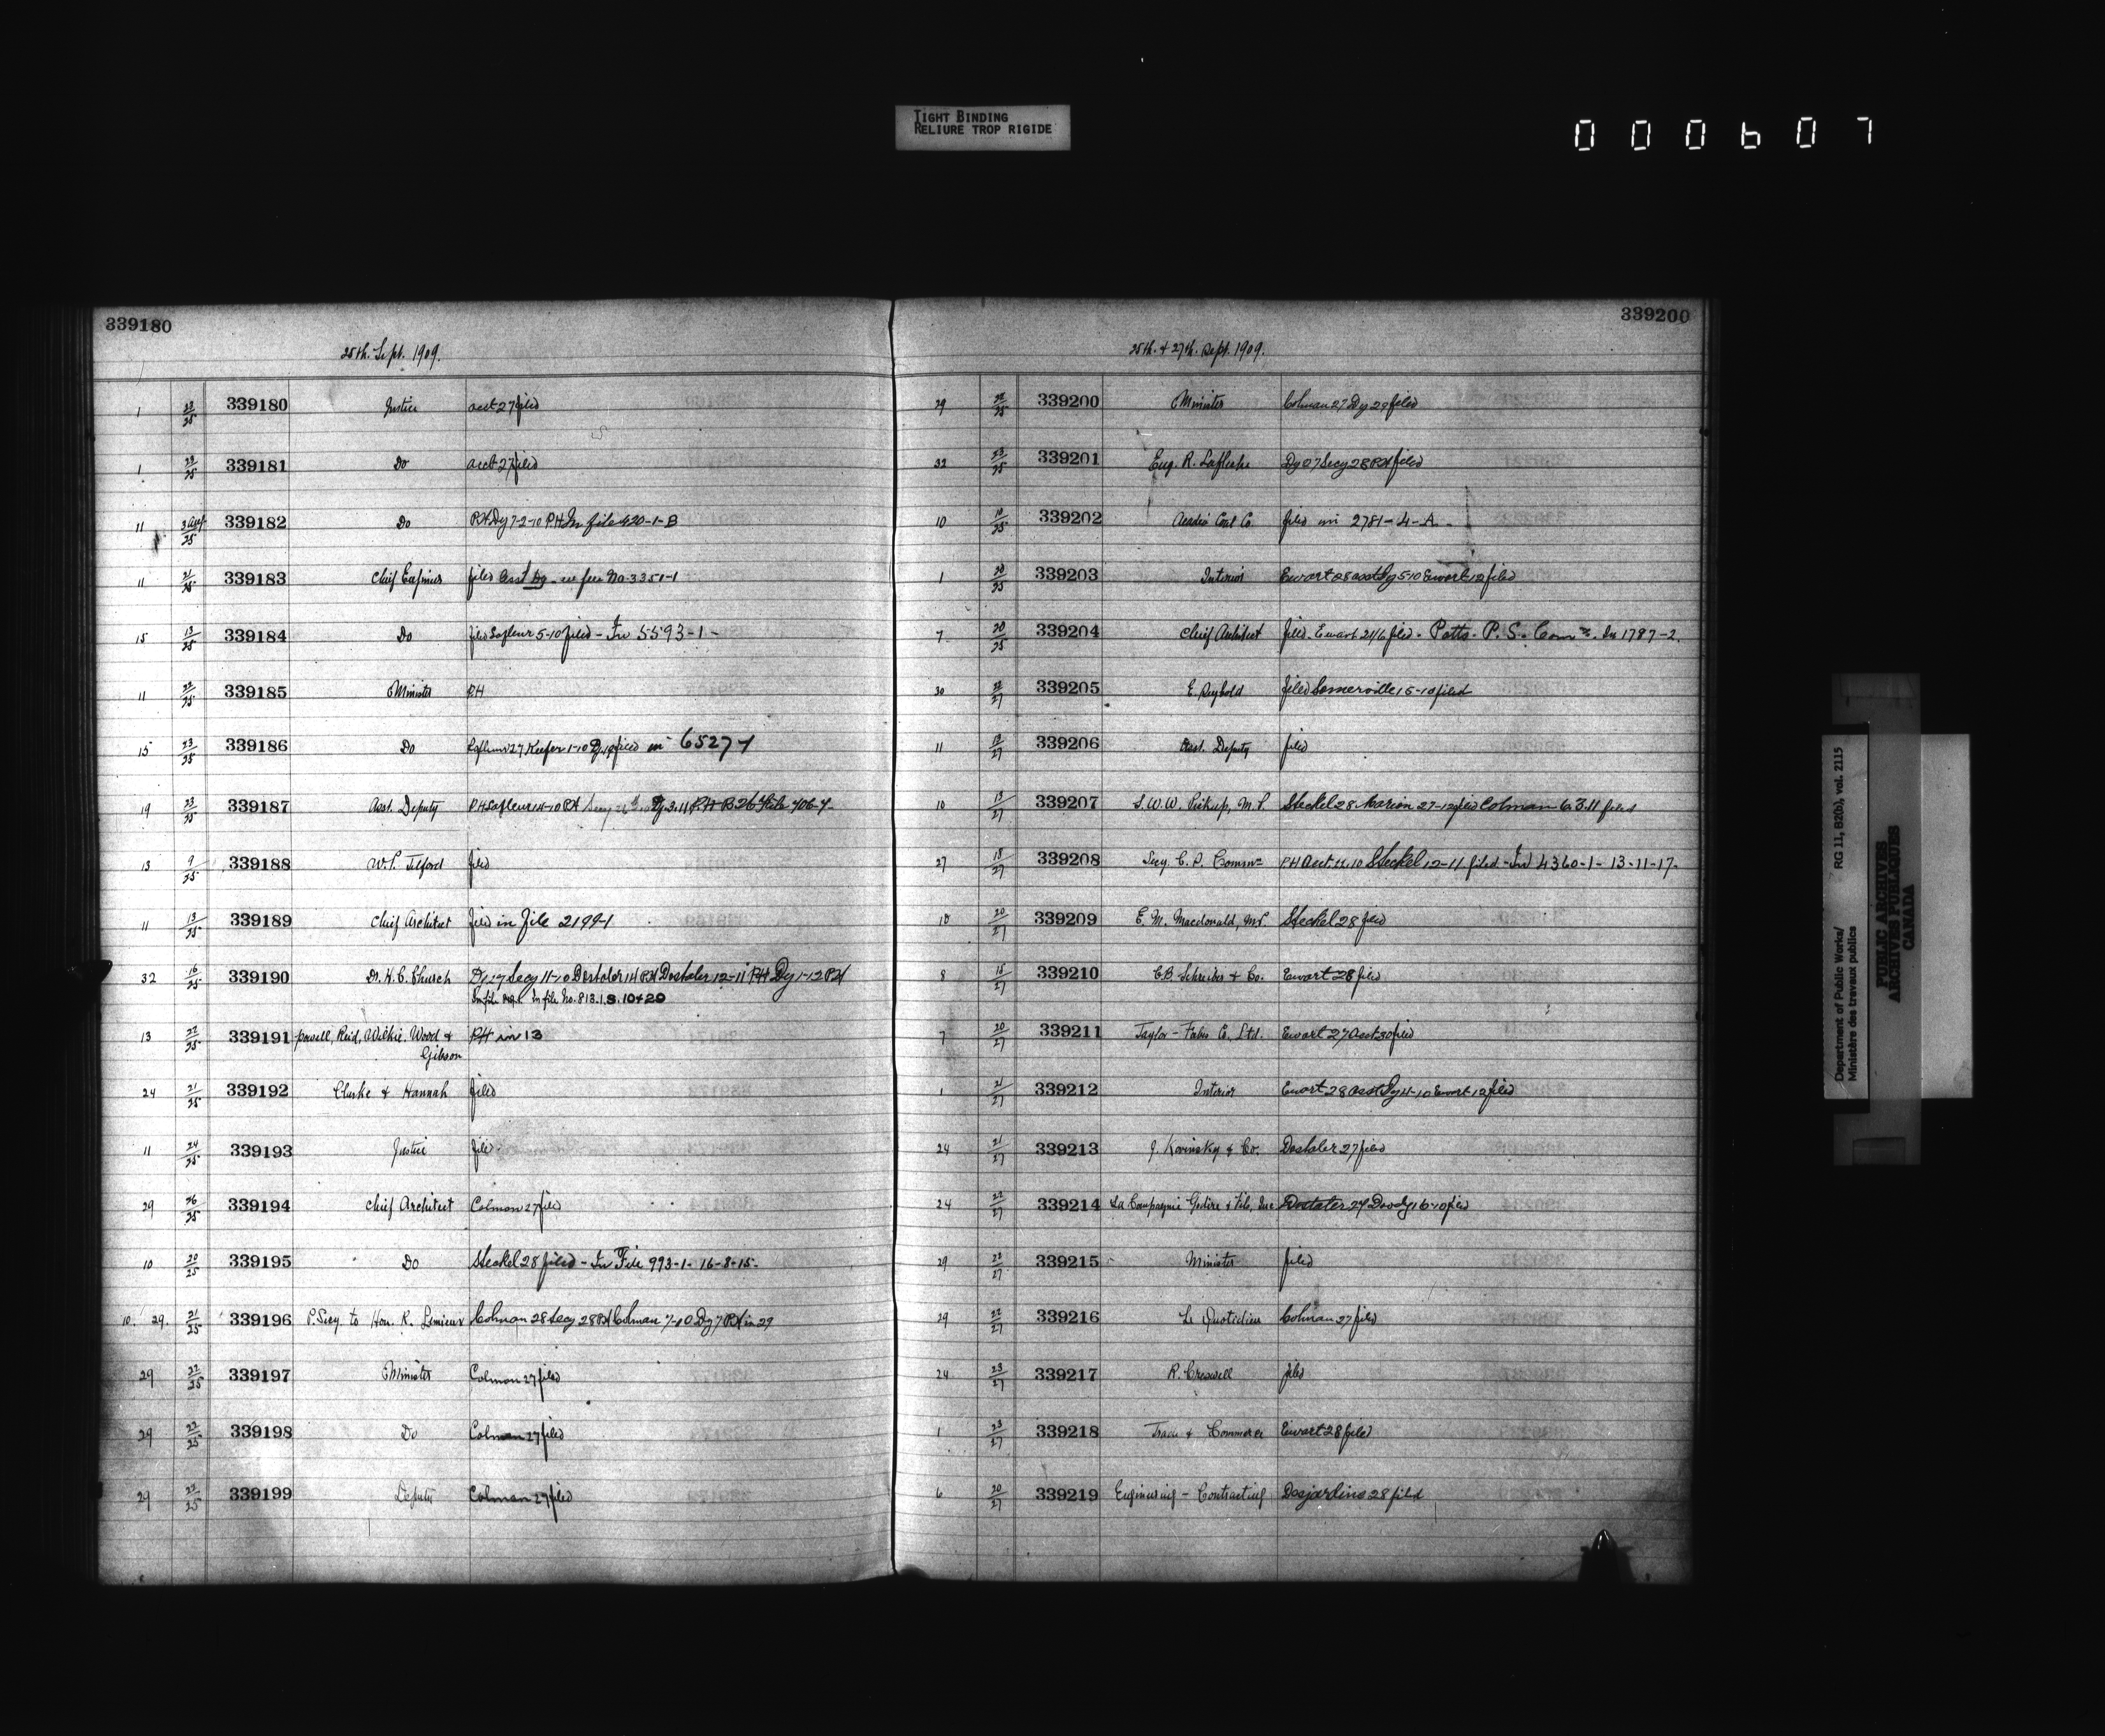 TIGHT BINDING
RELIURE TROP RIGIDE
000607
339180
25th. Sept. 1909.
1 23/25 339180 Justice acct 27 filed
1 23/25 339181 Do acct 27 filed
11 25 339182 Do P.H. Dy 7-2-10 P.H. In file 420-1-B
11 21/25 339183 Chief Engineer filed Asst Dy - see file No. 3351-1
15 13/25 339184 Do filed Lafleur 5-10 filed - In 5593-1-
11 22/25 339185 Minister P.H
15 23/25 339186 Do Lafleur 27 Keefer 1-10 Dy filed in 6527-1
19 23/25 339187 Asst. Deputy P.H Lafleur 14-10 P.H Secy Dy 3.11 P.H File 406-4-
13 9/25 339188 W.P. Telford filed
11 13/25 339189 Chief Architect filed in File 2199-1
32 16/25 339190 Dr. H.C. Church Dy 27 Secy 11-10 Dostaler 14 P.H Dostaler 12-11 P.H Dy 1-12 P.H
In file No. 813.1.S. 10+20
13 22/25 339191 Powell, Reid, Wilkie, Wood &
Gibson P.H in 13
24 21/25 339192 Clarke & Hannah filed
11 24/25 339193 Justice filed
29 25 339194 Chief Architect Colman 27 filed
10 20/25 339195 Do Steckel 28 filed - In File 993-1- 16-8-15-
10. 29. 21/25 339196 P. Secy to Hon. R. Lemieux Colman 28 Secy 28 P.H Colman 7-10 Dy 7 P.H in 29
29 22/25 339197 Minister Colman 27 filed
29 22/25 339198 Do Colman 27 filed
29 22/25 339199 Deputy Colman 27 filed
339200
25th. & 27th. Sept. 1909.
29 25 339200 Minister Colman 27 Dy 29 filed
32 23/25 339201 Eug. R. Laflèche Dy 27 Secy 28 P.H filed
10 25 339202 Acadia Coal Co. filed in 2781-4-A.-
1 25 339203 Interior Ewart 28 asst Dy 5-10 Ewart 12 filed
7 20/25 339204 Chief Architect filed. Ewart 21/6 filed. Potts. P.S. Com. In 1787-2.
30 27 339205 E. Reybold filed Somerville 15-10 filed
11 27 339206 Asst. Deputy filed
10 27 339207 S.W.W. Pickup, M.P. Steckel 28 Marion 27-12 filed Colman 6.3.11 filed
27 18/27 339208 Secy. C.P. Commn P.H Acct 11.10 Steckel 12-11 filed - In 4360-1- 13-11-17-
10 20/27 339209 E.M. Macdonald, M.P. Steckel 28 filed
8 15/27 339210 E.B. Schreiber & Co. Ewart 28 filed
7 20/27 339211 Taylor-Forbes Co., Ltd. Ewart 27 Acct 30 filed
1 21/27 339212 Interior Ewart 28 asst Dy 4-10 Ewart 12 filed
24 21/27 339213 J. Kovinsky & Co. Dostaler 27 filed
24 22/27 339214 La Compagnie & Fils, Inc Dostaler 27 16-10 filed
29 22/27 339215 Minister filed
29 22/27 339216 Le Quotidien Colman 27 filed
24 23/27 339217 R. Creswell filed
1 23/27 339218 Trade & Commerce Ewart 28 filed
6 20/27 339219 Engineering-Contracting Desjardins 28 filed
Department of Public Works/ RG 11, B2(b), vol. 2115
Ministère des travaux publics
PUBLIC ARCHIVES
ARCHIVES PUBLIQUES
CANADA